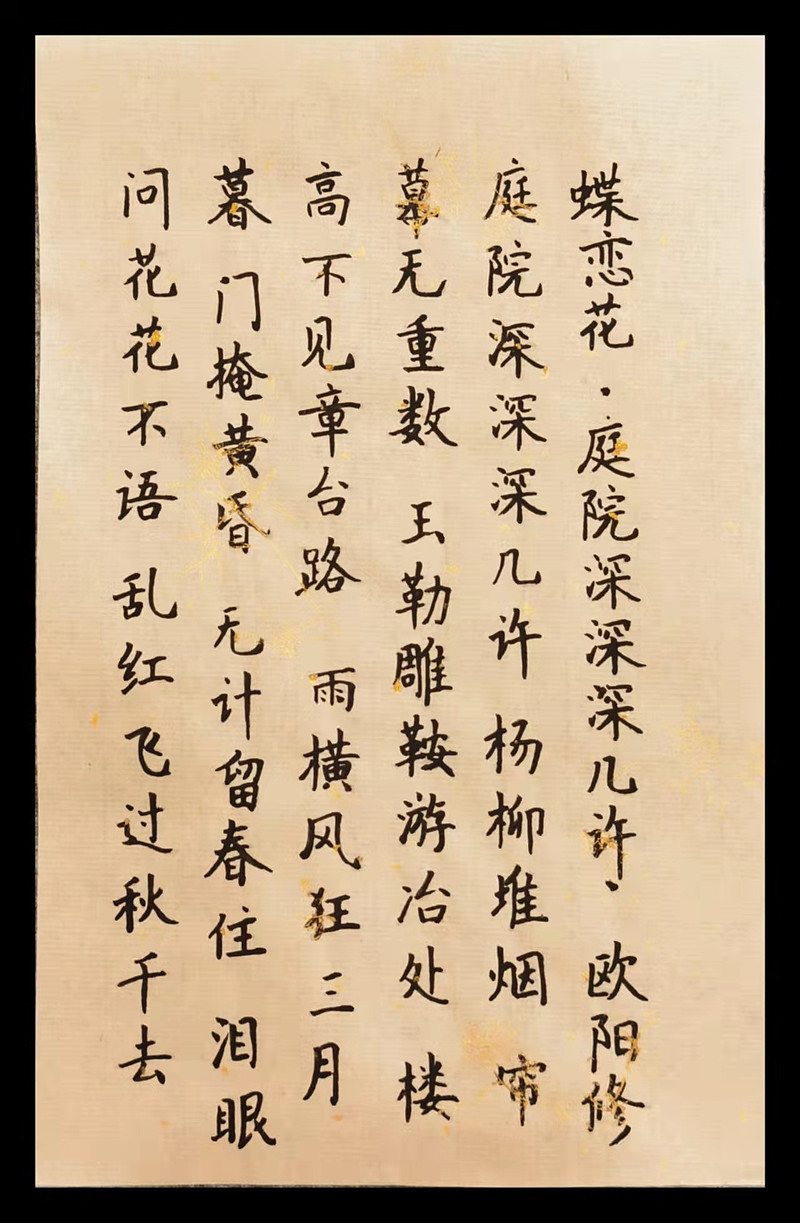 蝶恋花·庭院深深深几许·欧阳修
庭院深深深几许 杨柳堆烟 帘
幕无重数 玉勒雕鞍游冶处 楼
高不见章台路 雨横风狂三月
暮 门掩黄昏 无计留春住 泪眼
问花花不语 乱红飞过秋千去